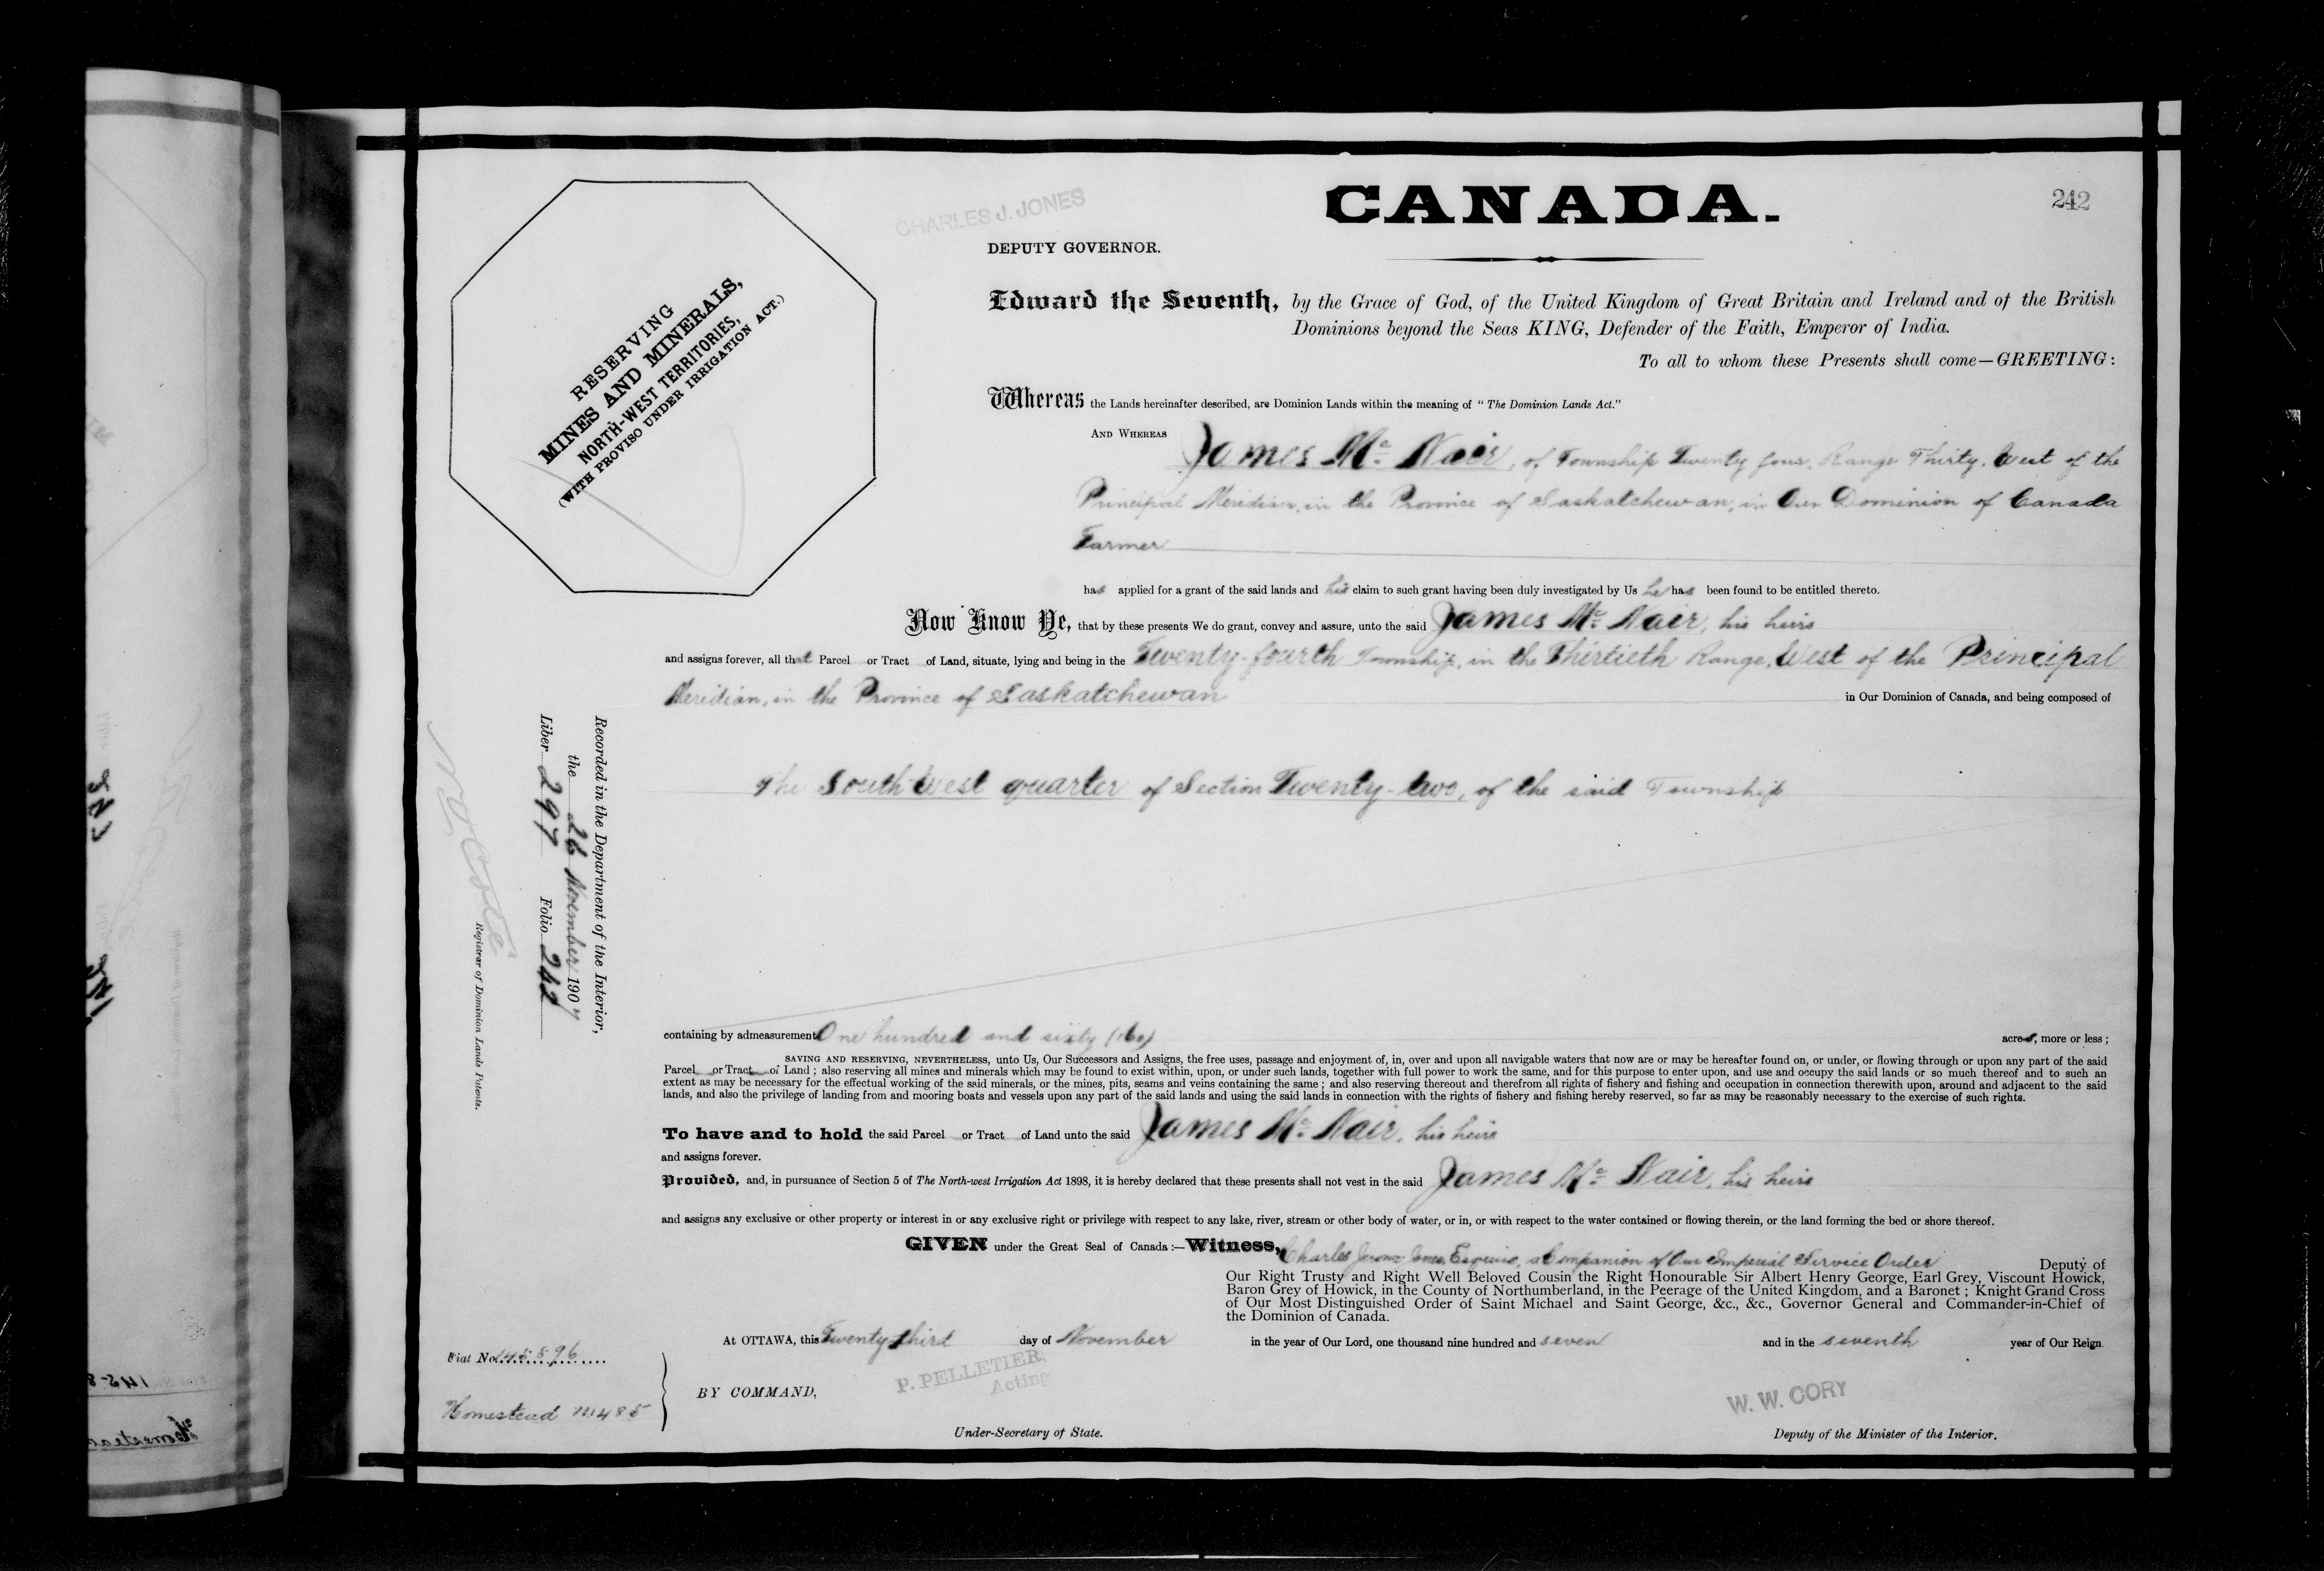 242
CHARLES J. JONES
CANADA.
DEPUTY GOVERNOR.
RESERVING
MINES AND MINERALS,
NORTH-WEST TERRITORIES,
(WITH PROVISO UNDER IRRIGATION ACT.)
Edward the Seventh, by the Grace of God, of the United Kingdom of Great Britain and Ireland and of the British
Dominions beyond the Seas KING, Defender of the Faith, Emperor of India.
To all to whom these Presents shall come—GREETING:
Whereas the Lands hereinafter described, are Dominion Lands within the meaning of "The Dominion Lands Act."
AND WHEREAS James Mc Nair, of Township Twenty four, Range Thirty, West of the
Principal Meridian, in the Province of Saskatchewan, in Our Dominion of Canada
Farmer
has applied for a grant of the said lands and his claim to such grant having been duly investigated by Us he has been found to be entitled thereto.
Now Know Ye, that by these presents We do grant, convey and assure, unto the said James Mc Nair, his heirs
and assigns forever, all that Parcel or Tract of Land, situate, lying and being in the Twenty-fourth Township, in the Thirtieth Range, West of the Principal
Meridian, in the Province of Saskatchewan in Our Dominion of Canada, and being composed of
The South West quarter of Section Twenty-two, of the said Township
Recorded in the Department of the Interior,
the 26 November 1907
Liber 297 Folio 242
N O Coté
Registrar of Dominion Lands Patents.
containing by admeasurement One hundred and sixty (160) acres, more or less;
SAVING AND RESERVING, NEVERTHELESS, unto Us, Our Successors and Assigns, the free uses, passage and enjoyment of, in, over and upon all navigable waters that now are or may be hereafter found on, or under, or flowing through or upon any part of the said
Parcel or Tract of Land; also reserving all mines and minerals which may be found to exist within, upon, or under such lands, together with full power to work the same, and for this purpose to enter upon, and use and occupy the said lands or so much thereof and to such an
extent as may be necessary for the effectual working of the said minerals, or the mines, pits, seams and veins containing the same; and also reserving thereout and therefrom all rights of fishery and fishing and occupation in connection therewith upon, around and adjacent to the said
lands, and also the privilege of landing from and mooring boats and vessels upon any part of the said lands and using the said lands in connection with the rights of fishery and fishing hereby reserved, so far as may be reasonably necessary to the exercise of such rights.
To have and to hold the said Parcel or Tract of Land unto the said James Mc Nair, his heirs
and assigns forever.
Provided, and, in pursuance of Section 5 of The North-west Irrigation Act 1898, it is hereby declared that these presents shall not vest in the said James Mc Nair, his heirs
and assigns any exclusive or other property or interest in or any exclusive right or privilege with respect to any lake, river, stream or other body of water, or in, or with respect to the water contained or flowing therein, or the land forming the bed or shore thereof.
GIVEN under the Great Seal of Canada:—Witness, Charles Jerome Jones Esquire, a Companion of Our Imperial Service Order Deputy of
Our Right Trusty and Right Well Beloved Cousin the Right Honourable Sir Albert Henry George, Earl Grey, Viscount Howick,
Baron Grey of Howick, in the County of Northumberland, in the Peerage of the United Kingdom, and a Baronet; Knight Grand Cross
of Our Most Distinguished Order of Saint Michael and Saint George, &c., &c., Governor General and Commander-in-Chief of
the Dominion of Canada.
At OTTAWA, this Twenty third day of November in the year of Our Lord, one thousand nine hundred and seven and in the seventh year of Our Reign
Fiat No. 145896
Homestead
BY COMMAND,
P. PELLETIER,
Acting
Under-Secretary of State.
W. W. CORY
Deputy of the Minister of the Interior.